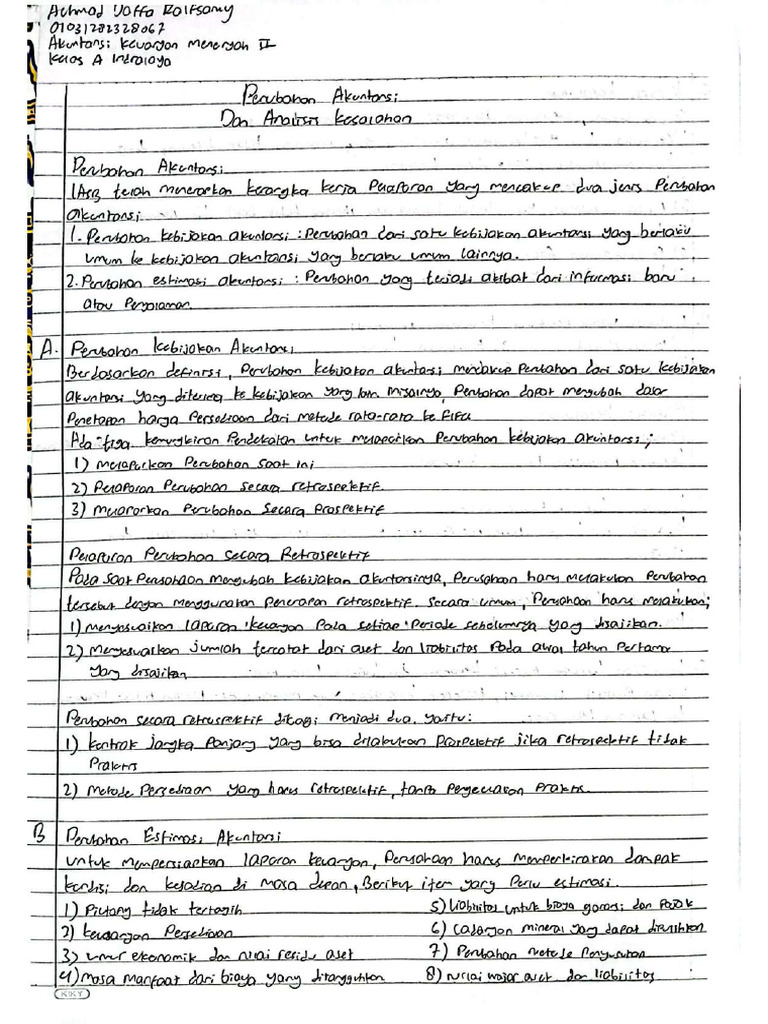 Achmad Daffa Raifsamy
01031282328067
Akuntansi Keuangan Menengah II
Kelas A Indralaya
Perubahan Akuntansi
Dan Analisis Kesalahan
Perubahan Akuntansi
IASB telah menerapkan kerangka kerja Pelaporan yang mencakup dua jenis Perubahan
akuntansi
1. Perubahan kebijakan akuntansi : Perubahan dari satu kebijakan akuntansi yang berlaku
umum ke kebijakan akuntansi yang berlaku umum lainnya.
2. Perubahan estimasi akuntansi : Perubahan yang terjadi akibat dari informasi baru
atau Pengalaman.
A. Perubahan Kebijakan Akuntansi
Berdasarkan definisi, Perubahan kebijakan akuntansi mencakup Perubahan dari satu kebijakan
akuntansi yang diterima ke kebijakan yang lain misalnya, Perubahan dapat mengubah dasar
Penetapan harga Persediaan dari metode rata-rata ke FIFO
Ada tiga kemungkinan Pendekatan untuk melaporkan Perubahan kebijakan akuntansi;
1) melaporkan Perubahan saat ini
2) Pelaporan Perubahan secara retrospektif.
3) Melaporkan Perubahan Secara Prospektif
Pelaporan Perubahan secara Retrospektif
Pada saat Perusahaan mengubah kebijakan akuntansinya, Perusahaan harus melakukan Perubahan
tersebut dengan menggunakan penerapan retrospektif. Secara umum, Perusahaan harus melakukan;
1) menyesuaikan laporan keuangan Pada setiap Periode sebelumnya yang disajikan.
2) Menyesuaikan jumlah tercatat dari aset dan liabilitas Pada awal tahun Pertama
yang disajikan
Perubahan secara retrospektif dibagi menjadi dua, yaitu:
1) kontrak jangka Panjang yang bisa dilakukan Prospektif jika retrospektif tidak
Praktis
2) Metode Persediaan yang harus retrospektif, tanpa Pengecualian Praktis.
B Perubahan Estimasi Akuntansi
Untuk mempersiapkan laporan keuangan, Perusahaan harus memperkirakan dampak
kondisi dan kejadian di masa depan, Berikut item yang Perlu estimasi.
1) Piutang tidak tertagih
2) keusangan Persediaan
3) umur ekonomik dan nilai residu aset
4) masa manfaat dari biaya yang ditangguhkan
5) liabilitas untuk biaya garansi dan Pajak
6) Cadangan mineral yang dapat dipulihkan
7) Perubahan metode Penyusutan
8) Nilai wajar aset dan liabilitas
KIKY